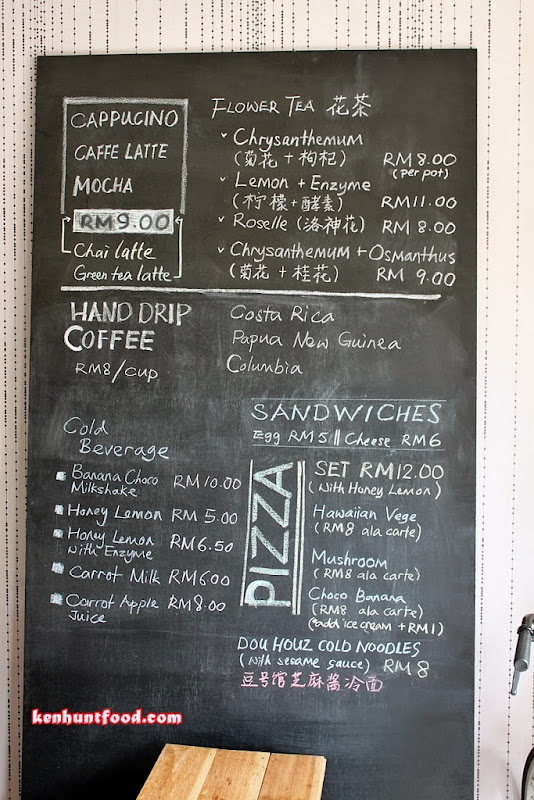 CAPPUCINO
CAFFE LATTE
MOCHA
RM 9.00
Chai latte
Green tea latte
FLOWER TEA 花茶
Chrysanthemum
(菊花 + 枸杞) RM 8.00
(per pot)
Lemon + Enzyme
(柠檬 + 酵素) RM11.00
Roselle (洛神花) RM 8.00
Chrysanthemum + Osmanthus
(菊花 + 桂花) RM 9.00
HAND DRIP
COFFEE
RM8/CUP
Costa Rica
Papua New Guinea
Columbia
Cold
Beverage
Banana Choco
Milkshake RM 10.00
Honey Lemon RM 5.00
Honey Lemon
with Enzyme RM 6.50
Carrot Milk RM 6.00
Carrot Apple
Juice RM 8.00
SANDWICHES
Egg RM 5 || Cheese RM 6
PIZZA
SET RM 12.00
(With Honey Lemon)
Hawaiian Vege
(RM8 ala carte)
Mushroom
(RM8 ala carte)
Choco Banana
(RM8 ala carte)
(*add ice cream + RM1)
DOU HOUZ COLD NOODLES
(with sesame sauce) RM 8
豆号馆芝麻酱冷面
kenhuntfood.com